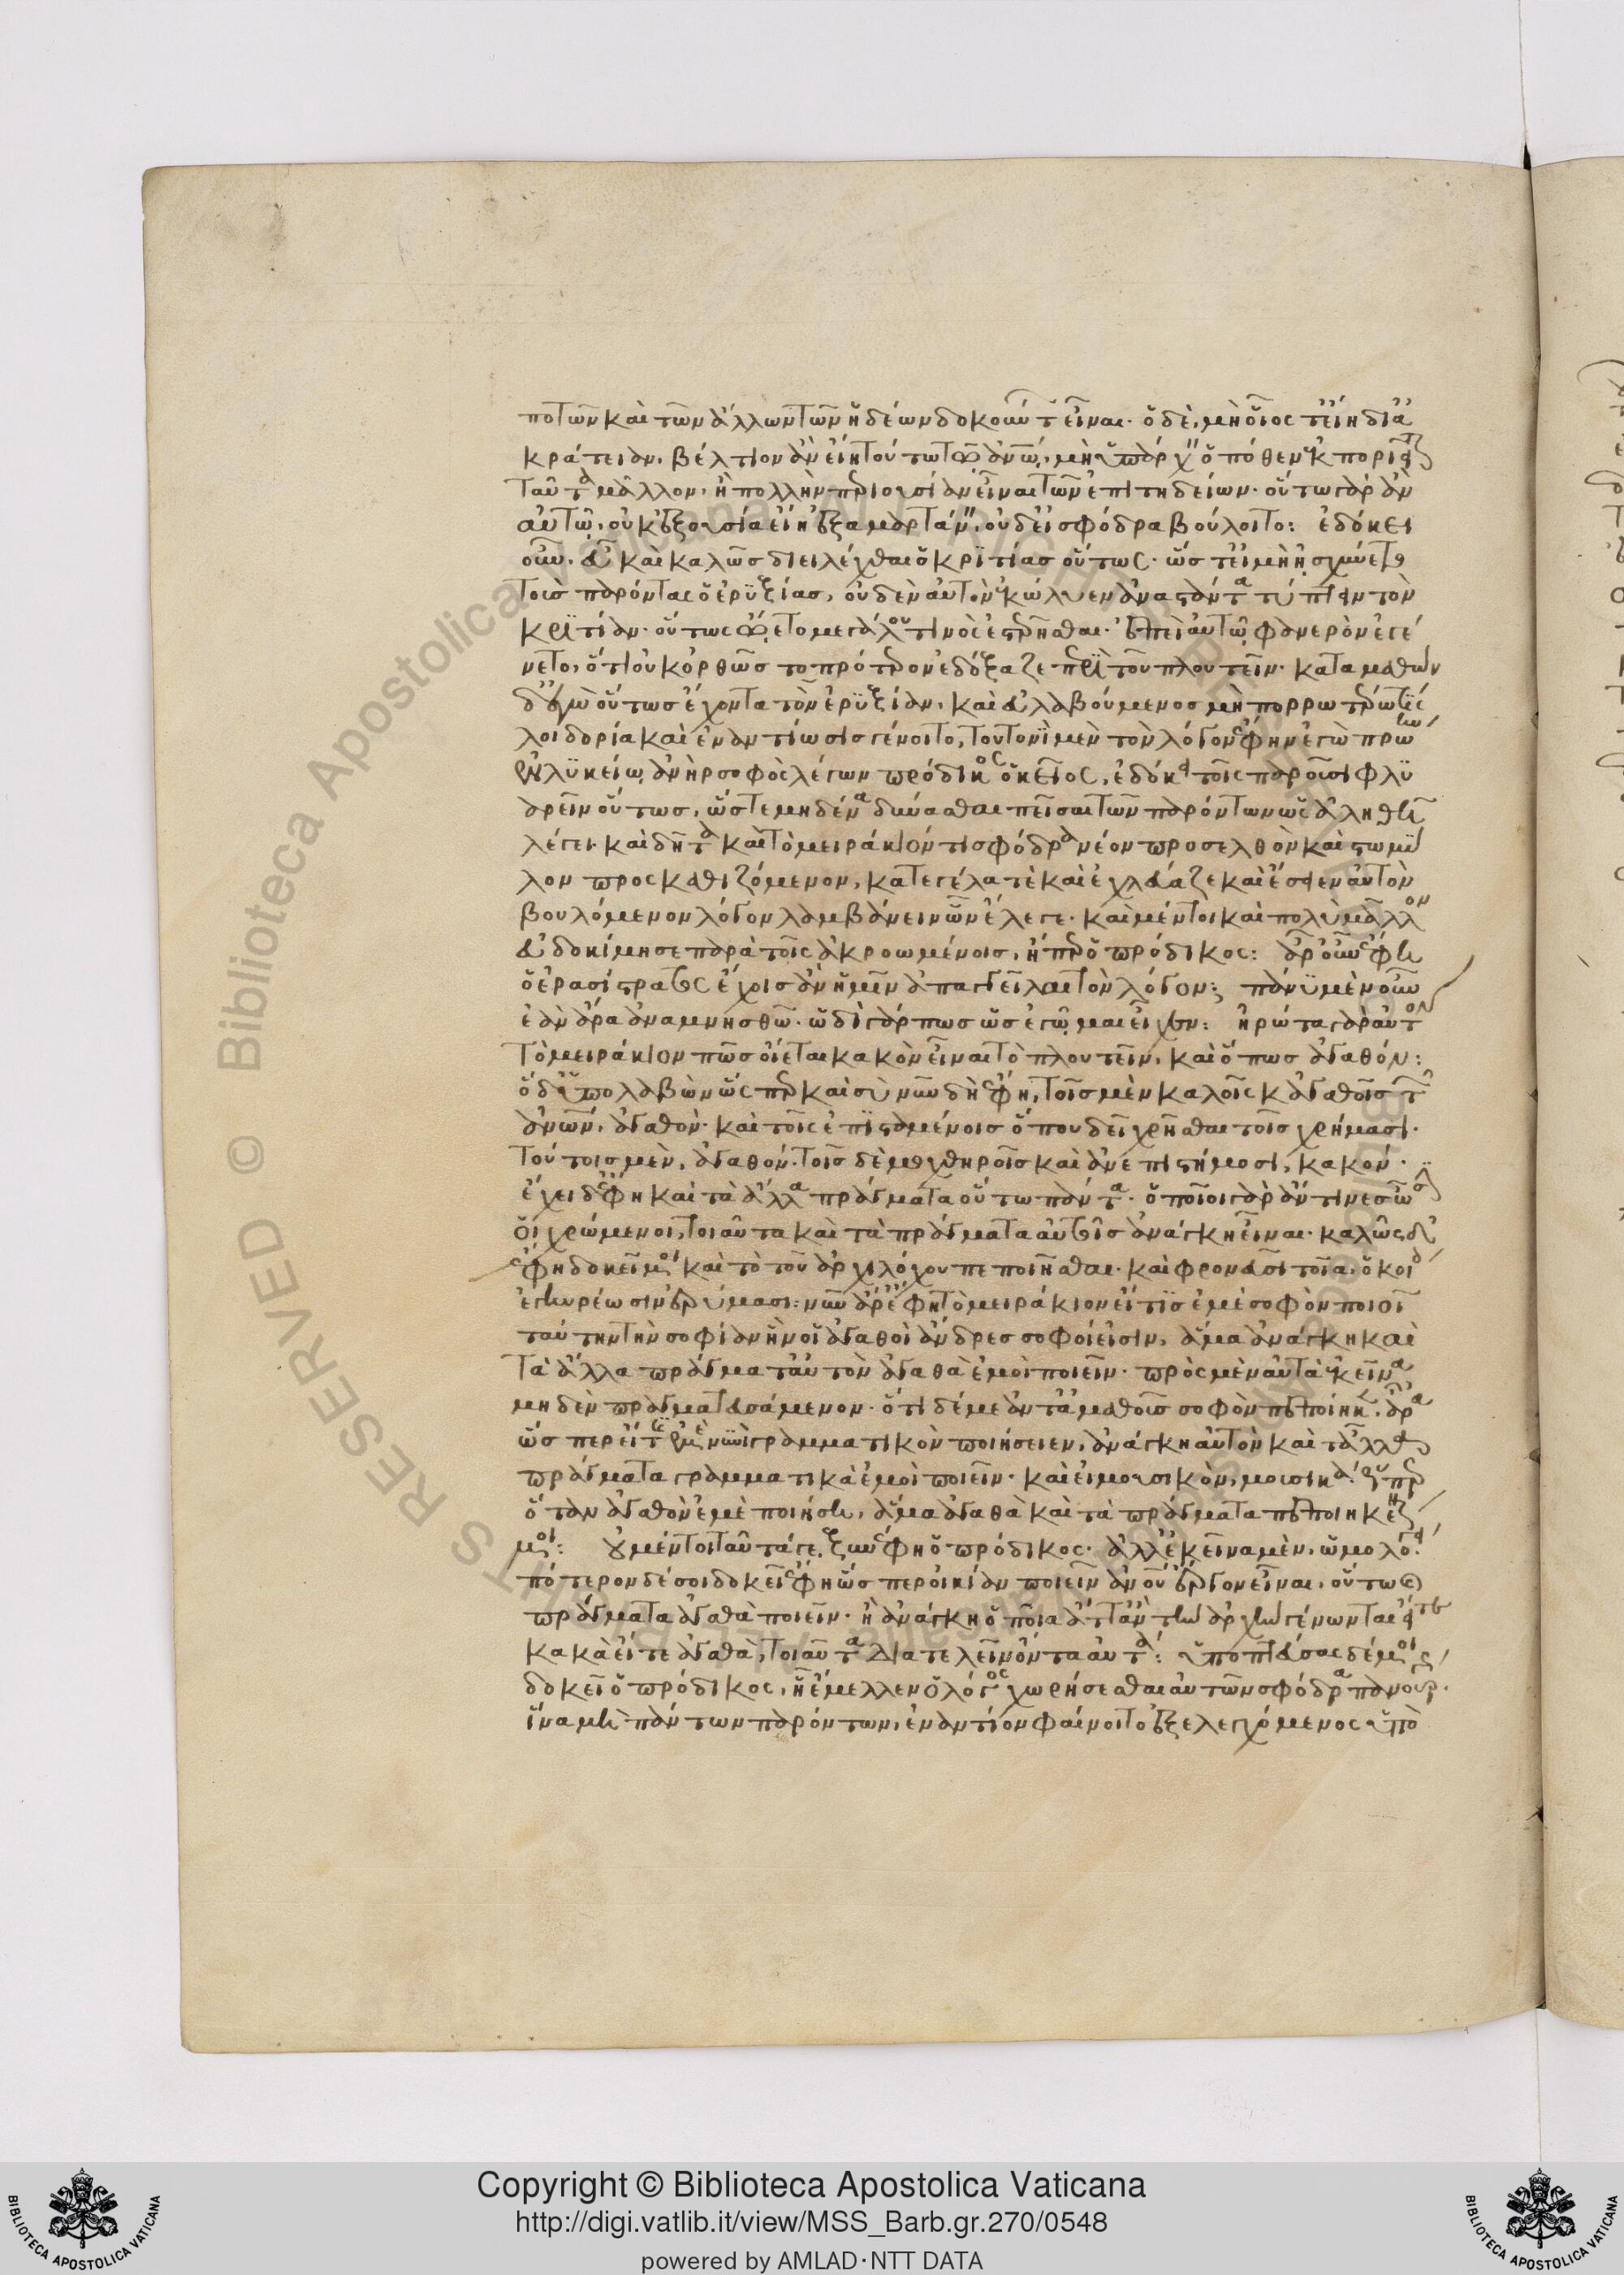 ποτῶν καὶ τῶν ἄλλων τῶν ἡδέων δοκούντ εἶναι· ὁ δὲ, μὴ οἷός τ' εἴη δια
κρατεῖν. βέλτιον ἂν εἴη τούτω τῶ ἀνω, μὴ ὑπάρχ ὁπόθεν ἐκποριεῖ
ταῦτα μᾶλλον, ἢ πολλὴν περιουσίαν εἶναι τῶν ἐπιτηδείων. οὕτω γὰρ ἂν
αὐτῶ, οὐκ ἐξουσία εἴη ἐξαμαρτάν, οὐδ' εἰ σφόδρα βούλοιτο: ἐδόκει
οὖν. εὖ καὶ καλῶς διειλέχθαι ὁ κριτίας οὕτως. ὥστ' εἰ μὴ ἠσχύνετο
τοὺς παρόντας ὁ ἐρυξίας, οὐδὲν αὐτὸν ἐκώλυεν ἀναστάντα τύπτειν τὸν
κριτίαν. οὕτως ᾤετο μεγάλου τινὸς ἐστερῆσθαι. ἐπεὶ αὐτῶ φανερὸν ἐγέ
νετο, ὅτι οὐκ ὀρθῶς τὸ πρότερον ἐδόξαζε περὶ τοῦ πλουτεῖν. καταμαθὼν
δ' ἐγὼ οὕτως ἔχοντα τὸν ἐρυξίαν, καὶ εὐλαβούμενος μὴ πορρωτέρω τι
λοιδορία καὶ ἐναντίωσις γένοιτο, τουτονὶ μὲν τὸν λόγον ἔφην ἐγὼ πρώην
ἐν λυκείω ἀνὴρ σοφὸς λέγων πρόδικος ὁ κεῖος, ἐδόκει τοῖς παροῦσι φλυ
αρεῖν οὕτως, ὥστε μηδένα δύνασθαι πεῖσαι τῶν παρόντων ὡς ἀληθῆ
λέγει. καὶ δῆτα καὶ τὸ μειράκιόν τι σφόδρα νέον προσελθὸν καὶ στωμύ
λον προσκαθιζόμενον, κατεγέλα τὲ καὶ ἐχλεύαζε καὶ ἔσειεν αὐτὸν
βουλόμενον λόγον λαμβάνειν ὧν ἔλεγε. καὶ μέντοι καὶ πολὺ μᾶλλον
εὐδοκίμησε παρὰ τοῖς ἀκροωμένοις, ἤπερ ὁ πρόδικος: ἆρ' οὖν ἔφη
ὁ ἐρασίστρατος ἔχοις ἂν ἡμῖν ἀπαγγεῖλαι τὸν λόγον; πάνυ μὲν οὖν
ἐὰν ἄρα ἀναμνησθῶ. ὡδὶ γάρ πως ὡς ἐγῶμαι εἶχεν: ἠρώτα γὰρ αὐτὸν
τὸ μειράκιον πῶς οἴεται κακὸν εἶναι τὸ πλουτεῖν, καὶ ὅπως ἀγαθόν:
ὁ δ' ὑπολαβὼν ὥσπερ καὶ σὺ νῦν δὴ ἔφη, τοῖς μὲν καλοῖς κἀγαθοῖς τ
ἀνων, ἀγαθὸν· καὶ τοῖς ἐπισταμένοις ὅπου δεῖ χρῆσθαι τοῖς χρήμασι.
τούτοις μὲν, ἀγαθόν. τοῖς δὲ μοχθηροῖς καὶ ἀνεπιστήμοσι, κακόν.
ἔχει δ' ἔφη καὶ τὰ ἄλλα πράγματα οὕτω πάντα. ὁποῖοι γὰρ ἄν τινες ὦσ
οἱ χρώμενοι, τοιαῦτα καὶ τὰ πράγματα αὐτοῖς ἀνάγκη εἶναι. καλῶς δ'
ἔφη δοκεῖ μοι καὶ τὸ τοῦ ἀρχιλόχου πεποιῆσθαι. καὶ φρονεῦσι τοῖα. ὁκοί
ἐγκυρέωσιν ἔργμασι: νῦν ἄρ' ἔφη τὸ μειράκιον εἴ τις ἐμὲ σοφὸν ποιοῖ
ταύτην τὴν σοφίαν ἣν οἱ ἀγαθοὶ ἄνδρες σοφοί εἰσιν, ἅμα ἀνάγκη καὶ
τὰ ἄλλα πράγματα αὐτὸν ἀγαθὰ ἐμοὶ ποιεῖν. πρὸς μὲν αὐτὰ ἐκεῖνα
μηδὲν πραγματευσάμενον. ὅτι δέ με ἀντ' ἀμαθοῦς σοφὸν πεποίηκ. ἆρα
ὥσπερ εἴ τις ἐμὲ νυνὶ γραμματικὸν ποιήσειεν, ἀνάγκη αὐτὸν καὶ τἆλλα
πράγματα γραμματικὰ ἐμοὶ ποιεῖν. καὶ εἰ μουσικὸν, μουσικά. ὥσπερ
ὅταν ἀγαθὸν ἐμὲ ποιήση, ἅμα ἀγαθὰ καὶ τὰ πράγματα πεποιηκέν
μοι: οὐ μέντοι ταῦτά γε, ξυνέφη ὁ πρόδικος. ἀλλ' ἐκεῖνα μὲν, ὡμολό
πότερον δέ σοι δοκεῖ ἔφη ὥσπερ οἰκίαν ποιεῖν ἀνου ἔργον εἶναι, οὕτω
πράγματα ἀγαθὰ ποιεῖν. ἢ ἀνάγκη ὁποῖα ἄττ' ἂν τὴν ἀρχὴν γένωνται εἴτε
κακὰ εἴτε ἀγαθὰ, τοιαῦτα διατελεῖν ὄντα αὐτά: ὑποπτεύσας δέ μοι
δοκεῖ ὁ πρόδικος, ᾗ ἔμελλεν ὁ λόγος χωρήσεσθαι αὐτῶν σφόδρα πανουρ.
ἵνα μὴ πάντων παρόντων, ἐναντίον φαίνοιτο ἐξελεγχόμενος ὑπὸ
Copyright © Biblioteca Apostolica Vaticana
http://digi.vatlib.it/view/MSS_Barb.gr.270/0548
powered by AMLAD·NTT DATA